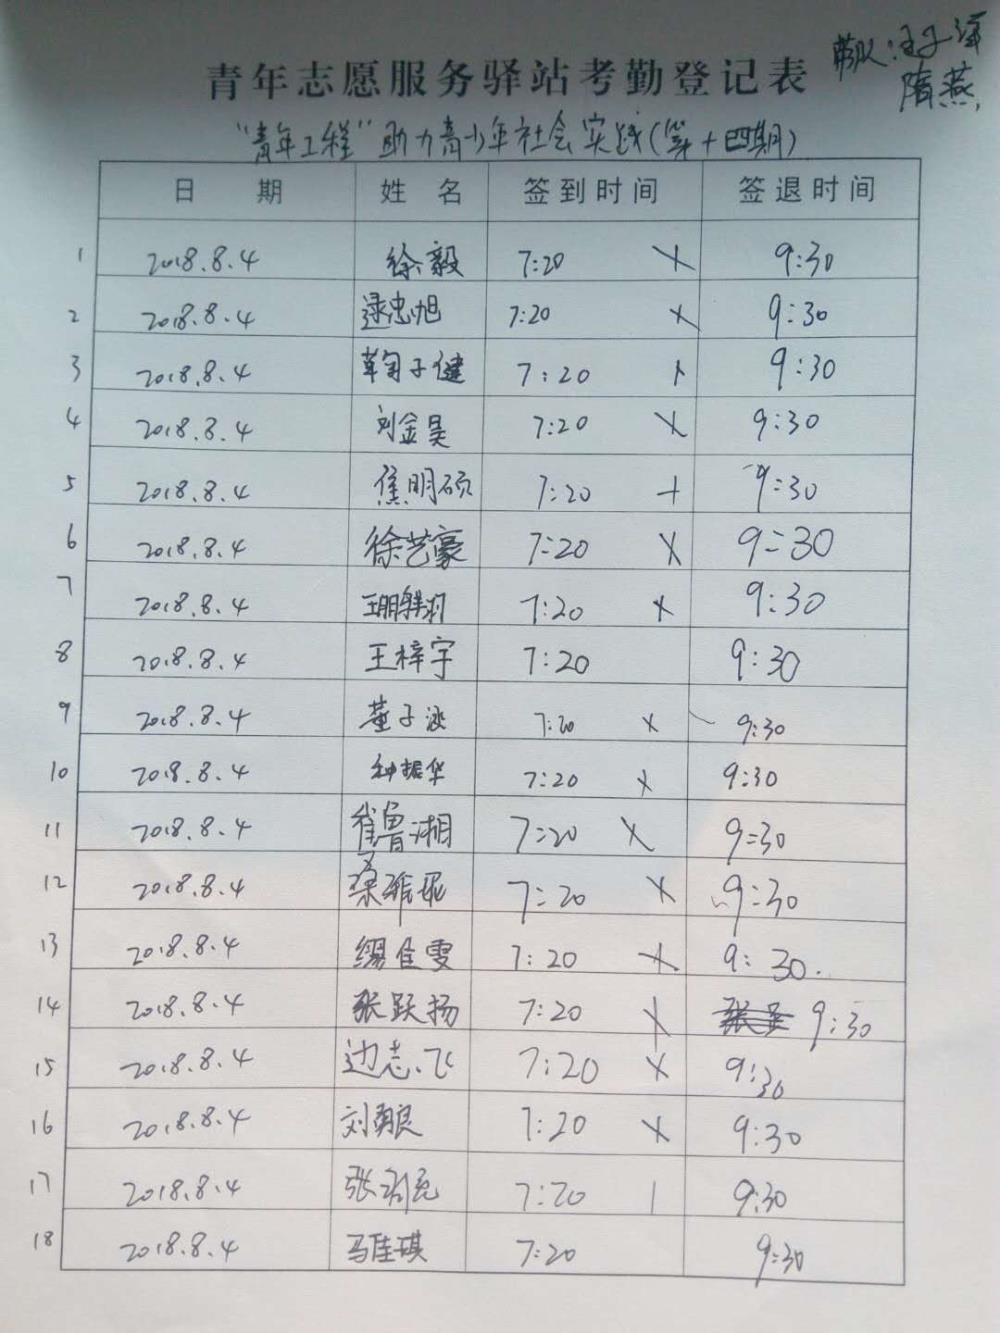 带队:王子泽
隋燕
青年志愿服务驿站考勤登记表
"青年工程"助力青少年社会实践(第十四期)
日 期 姓 名 签到时间 签退时间
1 2018.8.4 徐毅 7:20 × 9:30
2 2018.8.4 逯忠旭 7:20 × 9:30
3 2018.8.4 鞠子健 7:20 9:30
4 2018.8.4 刘金昊 7:20 × 9:30
5 2018.8.4 焦明硕 7:20 + 9:30
6 2018.8.4 徐艺豪 7:20 × 9:30
7 2018.8.4 7:20 × 9:30
8 2018.8.4 王梓宇 7:20 9:30
9 2018.8.4 董子 7:20 × 9:30
10 2018.8.4 种振华 7:20 × 9:30
11 2018.8.4 崔鲁湘 7:20 × 9:30
12 2018.8.4 桑雅琨 7:20 × 9:30
13 2018.8.4 缪佳雯 7:20 × 9:30.
14 2018.8.4 张跃扬 7:20 × 9:30
15 2018.8.4 边志飞 7:20 × 9:30
16 2018.8.4 刘 7:20 × 9:30
17 2018.8.4 张 7:20 9:30
18 2018.8.4 马佳琪 7:20 9:30